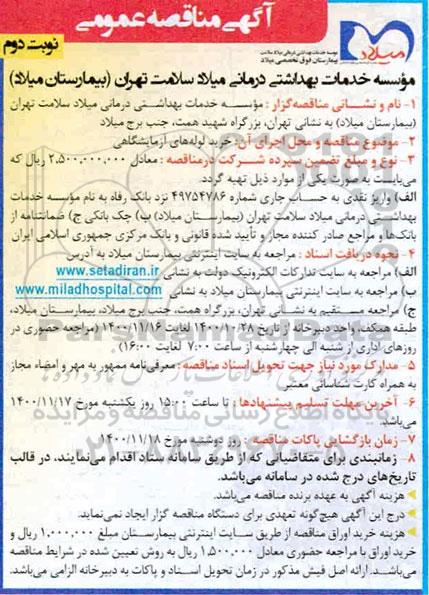 آگهی مناقصه عمومی
نوبت دوم
میلاد
موسسه خدمات بهداشتی درمانی میلاد سلامت
بیمارستان فوق تخصصی میلاد
مؤسسه خدمات بهداشتی درمانی میلاد سلامت تهران (بیمارستان میلاد)
۱- نام و نشانی مناقصه‌گزار : مؤسسه خدمات بهداشتی درمانی میلاد سلامت تهران
(بیمارستان میلاد) به نشانی تهران، بزرگراه شهید همت، جنب برج میلاد
۲- موضوع مناقصه و محل اجرای آن: خرید لوله‌های آزمایشگاهی
۳- نوع و مبلغ تضمین سپرده شرکت درمناقصه : معادل ۲,۵۰۰,۰۰۰,۰۰۰ ریال که
می‌بایست به صورت یکی از موارد ذیل تهیه گردد.
الف) واریز نقدی به حساب جاری شماره ۴۹۷۵۴۷۸۶ نزد بانک رفاه به نام مؤسسه خدمات
بهداشتی درمانی میلاد سلامت تهران (بیمارستان میلاد) ب) چک بانکی ج) ضمانتنامه از
بانک‌ها و مراجع صادر کننده مجاز و تأیید شده قانونی و بانک مرکزی جمهوری اسلامی ایران
۴- نحوه دریافت اسناد : مراجعه به سایت اینترنتی بیمارستان میلاد به آدرس
الف) مراجعه به سایت تدارکات الکترونیک دولت به نشانی www.setadiran.ir
ب) مراجعه به سایت اینترنتی بیمارستان میلاد به نشانی www.miladhospital.com
ج) مراجعه مستقیم به نشانی تهران، بزرگراه همت، جنب برج میلاد، بیمارستان میلاد،
طبقه همکف، واحد دبیرخانه از تاریخ ۱۴۰۰/۱۰/۲۸ لغایت ۱۴۰۰/۱۱/۱۶ (مراجعه حضوری در
روزهای اداری از شنبه الی چهارشنبه از ساعت ۷:۰۰ لغایت ۱۶:۰۰)
۵- مدارک مورد نیاز جهت تحویل اسناد مناقصه : معرفی‌نامه ممهور به مهر و امضاء مجاز
به همراه کارت شناسائی معتبر
۶- آخرین مهلت تسلیم پیشنهادها : تا ساعت ۱۵:۰۰ روز یکشنبه مورخ ۱۴۰۰/۱۱/۱۷
می‌باشد.
۷- زمان بازگشایی پاکات مناقصه : روز دوشنبه مورخ ۱۴۰۰/۱۱/۱۸
۸- زمانبندی برای متقاضیانی که از طریق سامانه ستاد اقدام می‌نمایند، در قالب
تاریخ‌های درج شده در سامانه می‌باشد.
هزینه آگهی به عهده برنده مناقصه می‌باشد.
درج این آگهی هیچ‌گونه تعهدی برای دستگاه مناقصه گزار ایجاد نمی‌نماید.
هزینه خرید اوراق مناقصه از طریق سایت اینترنتی بیمارستان مبلغ ۱,۰۰۰,۰۰۰ ریال و
خرید اوراق با مراجعه حضوری معادل ۱,۵۰۰,۰۰۰ ریال به روش تعیین شده در شرایط مناقصه
می‌باشد. ارائه اصل فیش مذکور در زمان تحویل اسناد و پاکات به دبیرخانه الزامی می‌باشد.